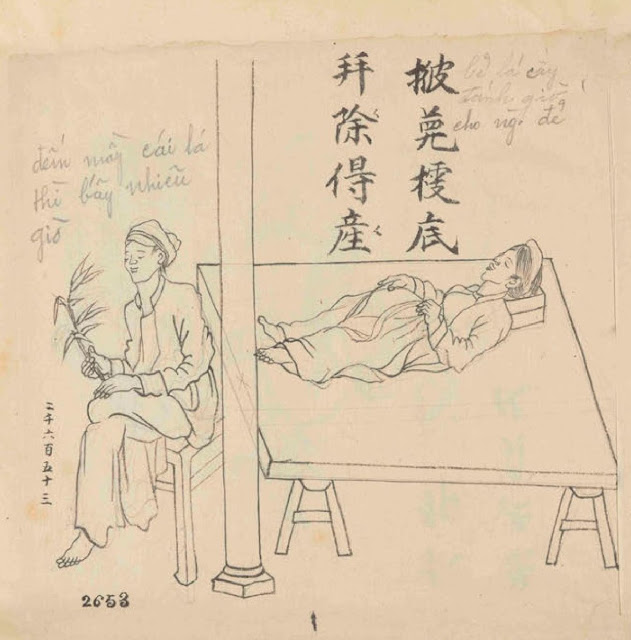 底
拝除得産
bẻ lá cây
đánh giờ
cho ng. đẻ
đếm mấy cái lá
thì bấy nhiêu
giờ
二千六百五十三
2653